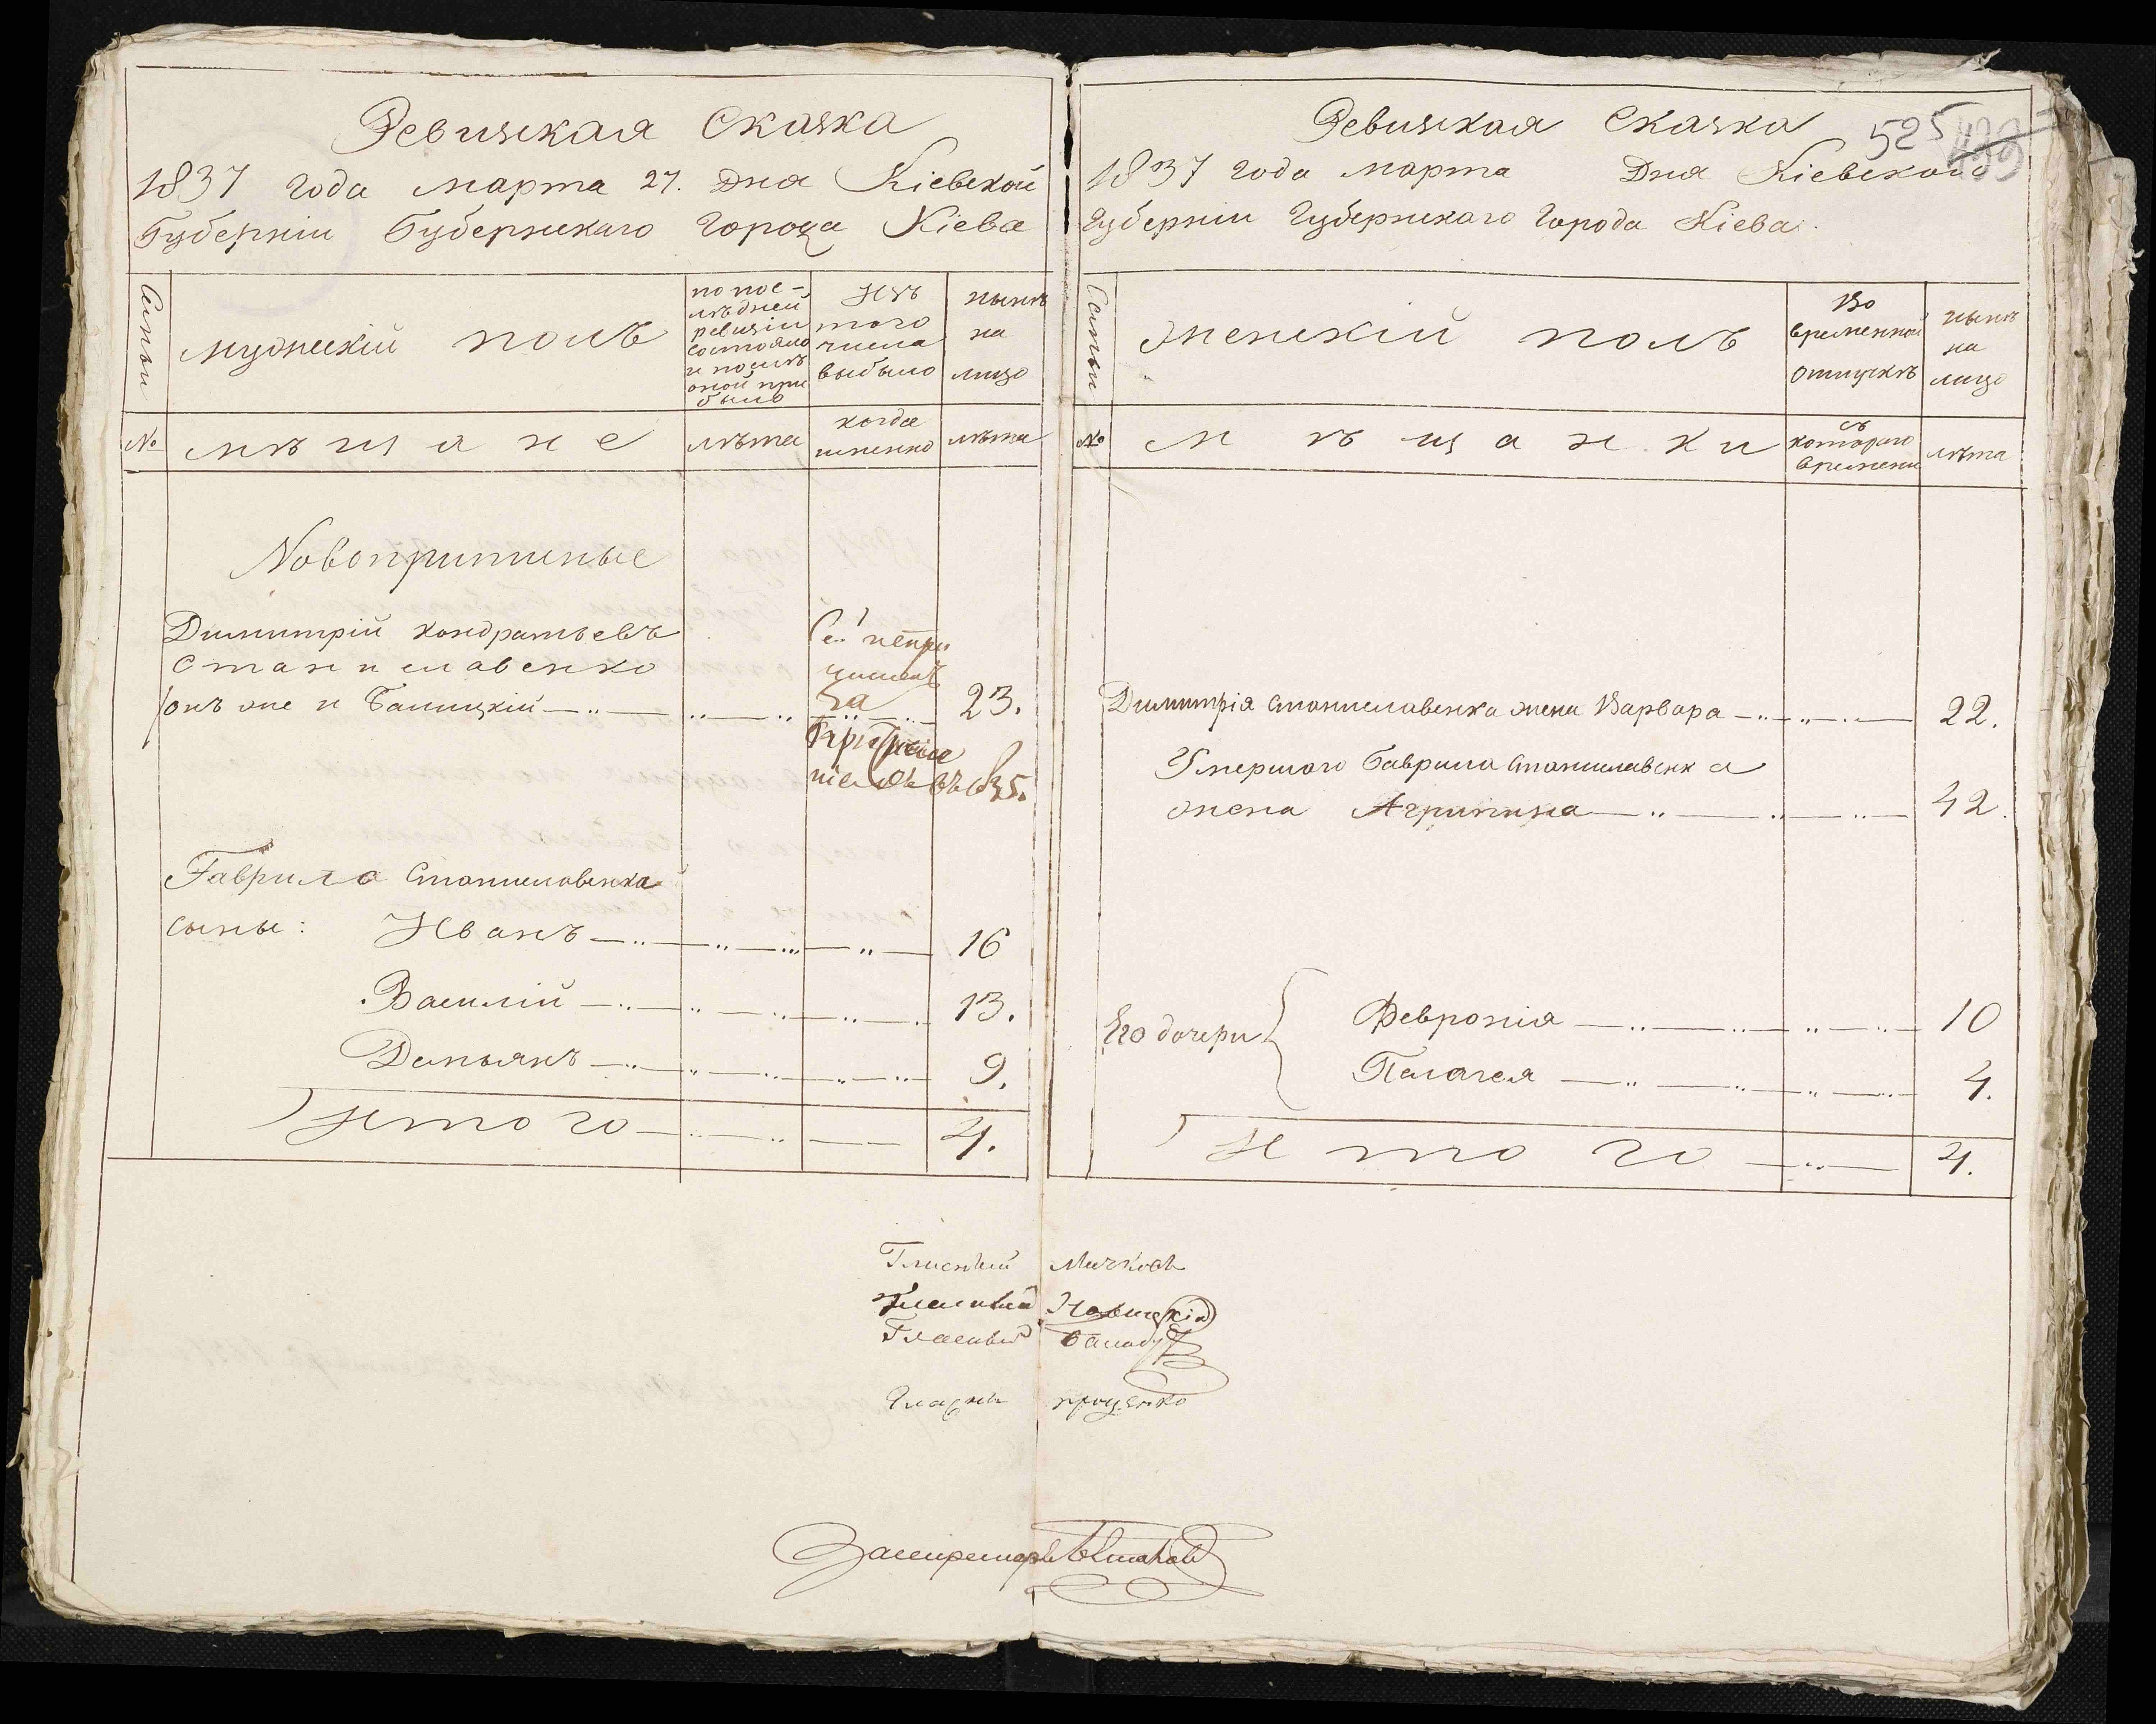 Ревизская Сказка
1837 года марта 27. Дня Кіевской
Губерніи Губернскаго города Кіева
Семьи
мужескій полъ
по пос-
лѣдней
ревизіи
состояло
и послѣ
оной при
было
Изъ
того
числа
выбыло
нынѣ
на
лицо
№
мѣщане
лѣта
когда
именно
лѣта
Новопритиные
Димитрій Кондратьевъ
Станиславенко
онъ же и Балицкій
за
23.
Гаврила Станиславенка
сыны: Иванъ 16
Василій 13.
Демьянъ 9.
Итого 4.
Ревизская Сказка
525
499
1837 года марта Дня Кіевской
Губерніи Губернскаго города Кіева.
Семьи
женскій полъ
Во
временной
отлучкѣ
нынѣ
на
лицо
№
мѣщанки
съ
котораго
времени
лѣта
Димитрія Станиславенка жена Варвара 22.
Умершаго Гаврила Станиславенка
жена Агрипина 42.
Его дочери
Февронія 10
Пелагея 4.
Итого 4.
Гласный
Гласный
Гласный
Гласны проценко